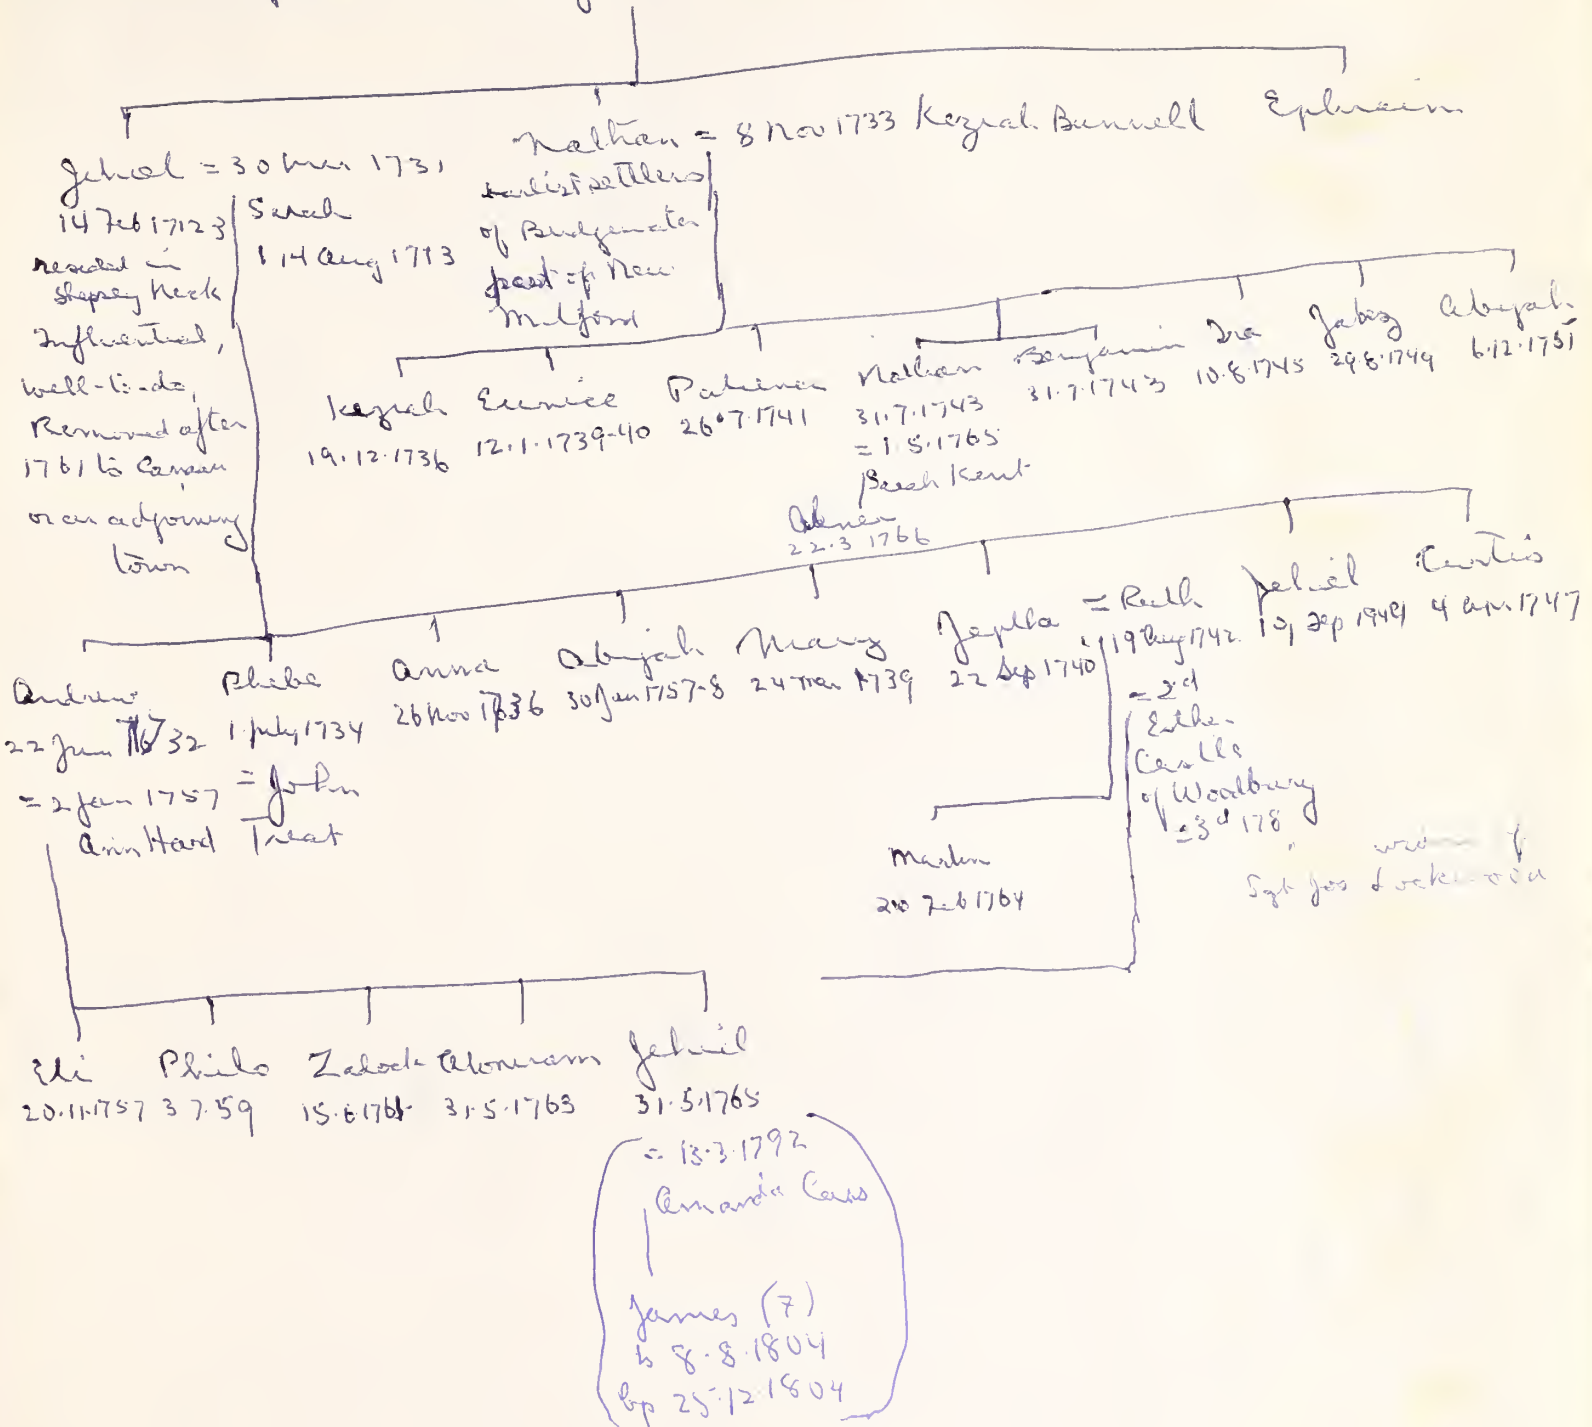 Nathan = 8 Nov 1733 Keziah Bunnell
Ephraim
Jehiel = 30 Mar 1731
14 Feb 1712 3
resided in
Shepsey Neck
Influential,
well-to-do,
Removed after
1761 to Canaan
or an adjoining
town
Sarah
14 Aug 1713
earliest settlers
of Bridgewater
part of New
Milford
Keziah
19.12.1736
Eunice
12.1.1739-40
Patience
26.7.1741
Nathan
31.7.1743
= 1.5.1765
Sarah Kent
Benjamin
31.7.1743
Ira
10.8.1745
Jabez
29.8.1749
Abijah
6.12.1751
Abner
22.3 1766
Andrew
22 Jun 1732
= 2 Jan 1757
Ann Hard
Phebe
1 July 1734
= John
Treat
Anna
26 Nov 1736
Abijah
30 Jan 1757-8
Mary
24 Mar 1739
Jeptha
22 Sep 1740
= Ruth
19 Aug 1742
= 2d
Esther
Castle
of Woodbury
= 3d 178
Sgt Jos Lockwood
Jehiel
Sep 1944
Curtis
4 Apr. 1747
Martin
20 Feb 1764
Eli
20.11.1757
Philo
3 7.59
Zadock
15.6.1761
Adoniram
31.5.1763
Jehiel
31.5.1765
= 13.3.1792
Amanda
James (7)
b 8.8.1804
bp 25.12.1804